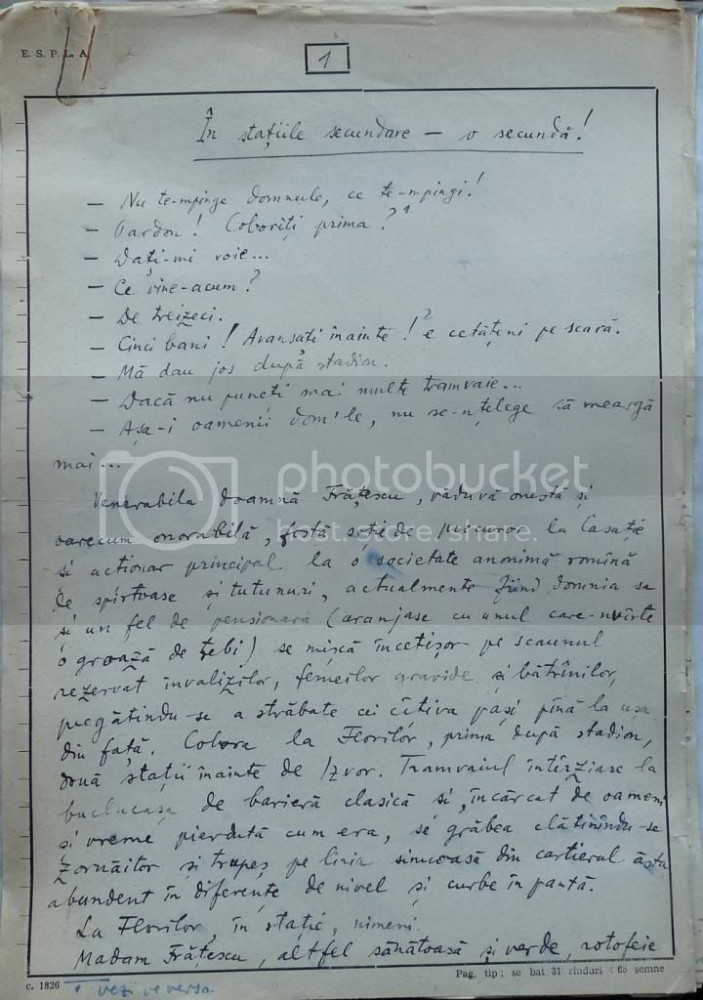 E. S. P. L. A.
1
În stațiile secundare — o secundă!
— Nu te-mpinge domnule, ce te-mpingi!
— Pardon! Coborîți prima?¹
— Dați-mi voie...
— Ce vine-acum?
— De treizeci.
— Cinci bani! Avansați înainte!² e cetățeni pe scară.
— Mă dau jos după stadion.
— Dacă nu puneți mai multe tramvaie...
— Așa-i oamenii dom'le, nu se-nțelege să meargă
mai...
photobucket
host. store. share.
Venerabila doamnă Frățescu, văduvă onestă și
oarecum onorabilă, fostă soție de procuror la Casație
și acționar principal la o societate anonimă romînă
de spirtoase și tutunuri, actualmente fiind domnia sa
și un fel de pensionară (aranjase cu unul care-nvîrte
o groază de trebi) se mișcă încetișor pe scaunul
rezervat invalizilor, femeilor gravide și bătrînilor,
pregătindu-se a străbate cei cîțiva pași pînă la ușa
din față. Cobora la Florilor, prima după stadion,
două stații înainte de Izvor. Tramvaiul întîrziase la
buclucașa de barieră clasică și, încărcat de oameni
și vreme pierdută cum era, se grăbea clătinîndu-se
zornăitor și trupeș pe linia sinuoasă din cartierul ăsta
abundent în diferențe de nivel și curbe în pantă.
La Florilor, în stație, nimeni.
Madam Frățescu, altfel sănătoasă și verde, rotofeie
c. 1826
1 vezi verso.
Pag. tip: se bat 31 rînduri 65 semne